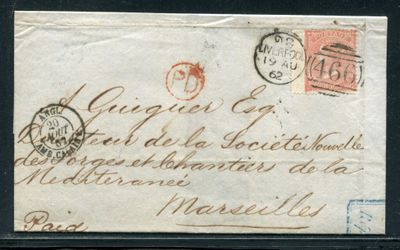 LIVERPOOL
19 AU
62
466
PD
ANGL.
20
AOUT
62
AMB. CALAIS
Esq
Directeur de la Société Nouvelle
des Forges et Chantiers de la
Mediteranée
Marseilles
Paid